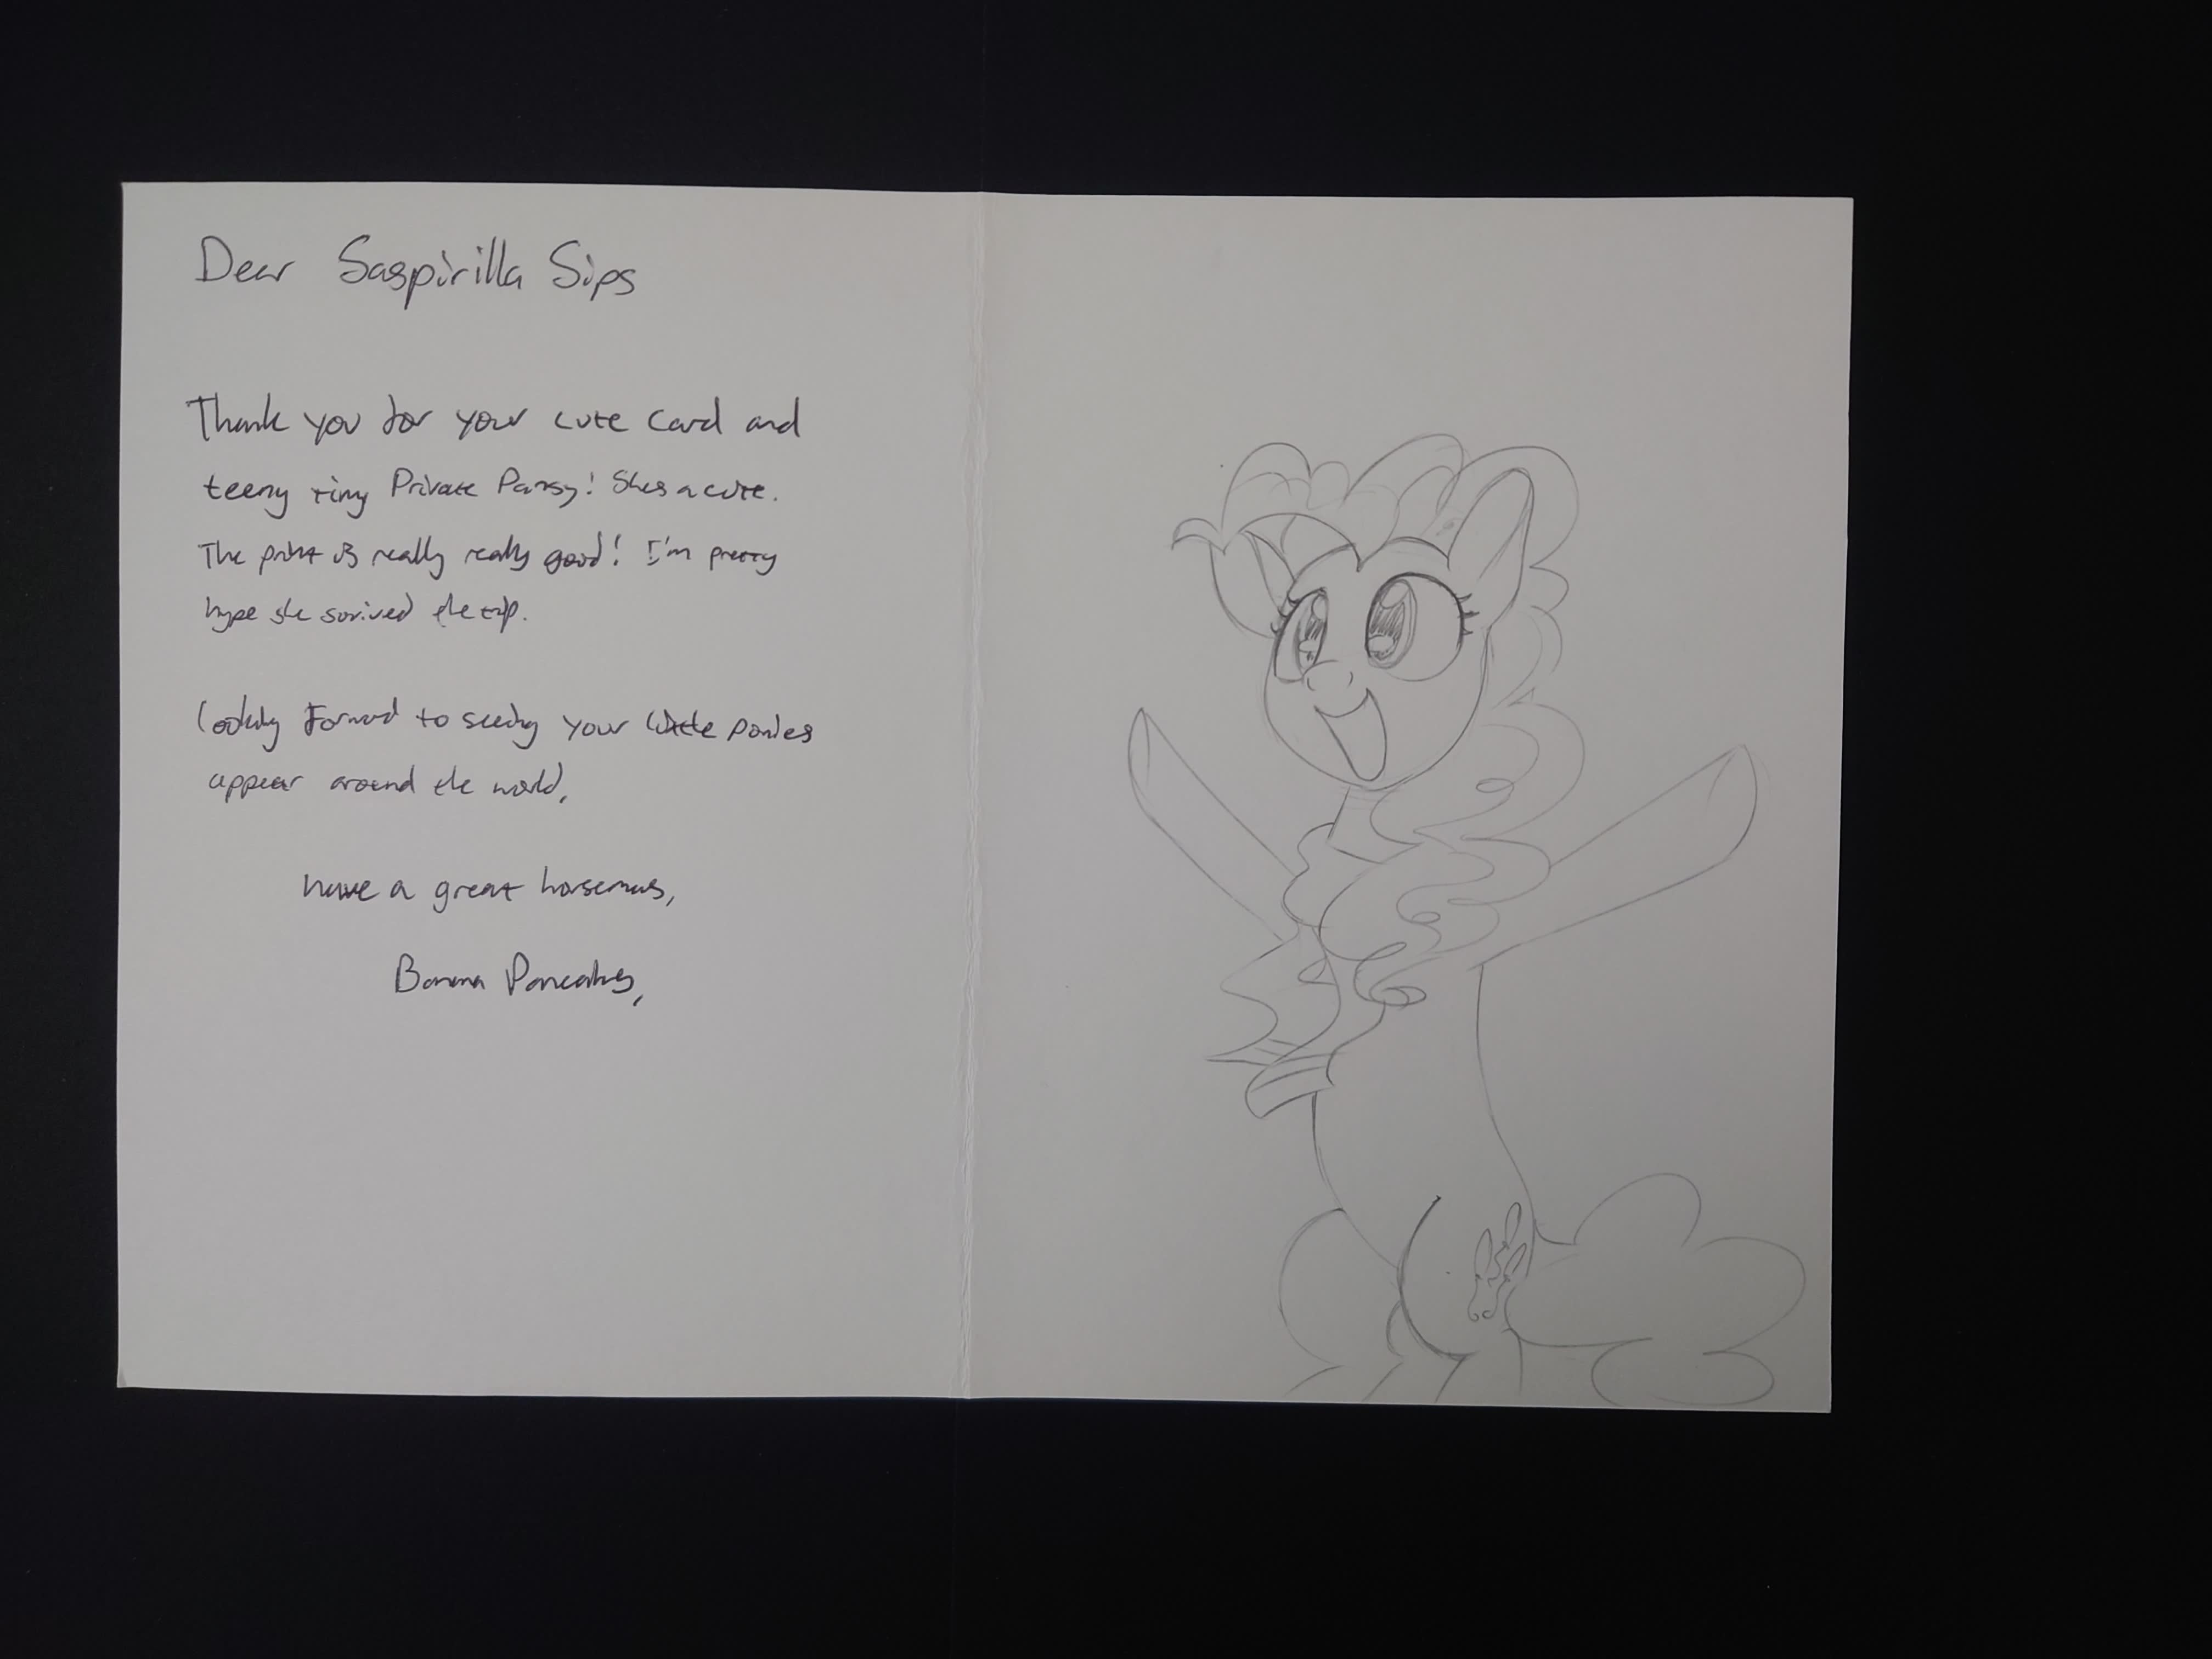 Dear Saspirilla Sips
Thank you for your cute card and
teeny tiny Private Pansy! Shes a cute.
The print is really really good! I'm pretty
hype she survived the trip.
Looking Forward to seeing your little ponies
appear around the world,
have a great horsemas,
Banana Pancakes,